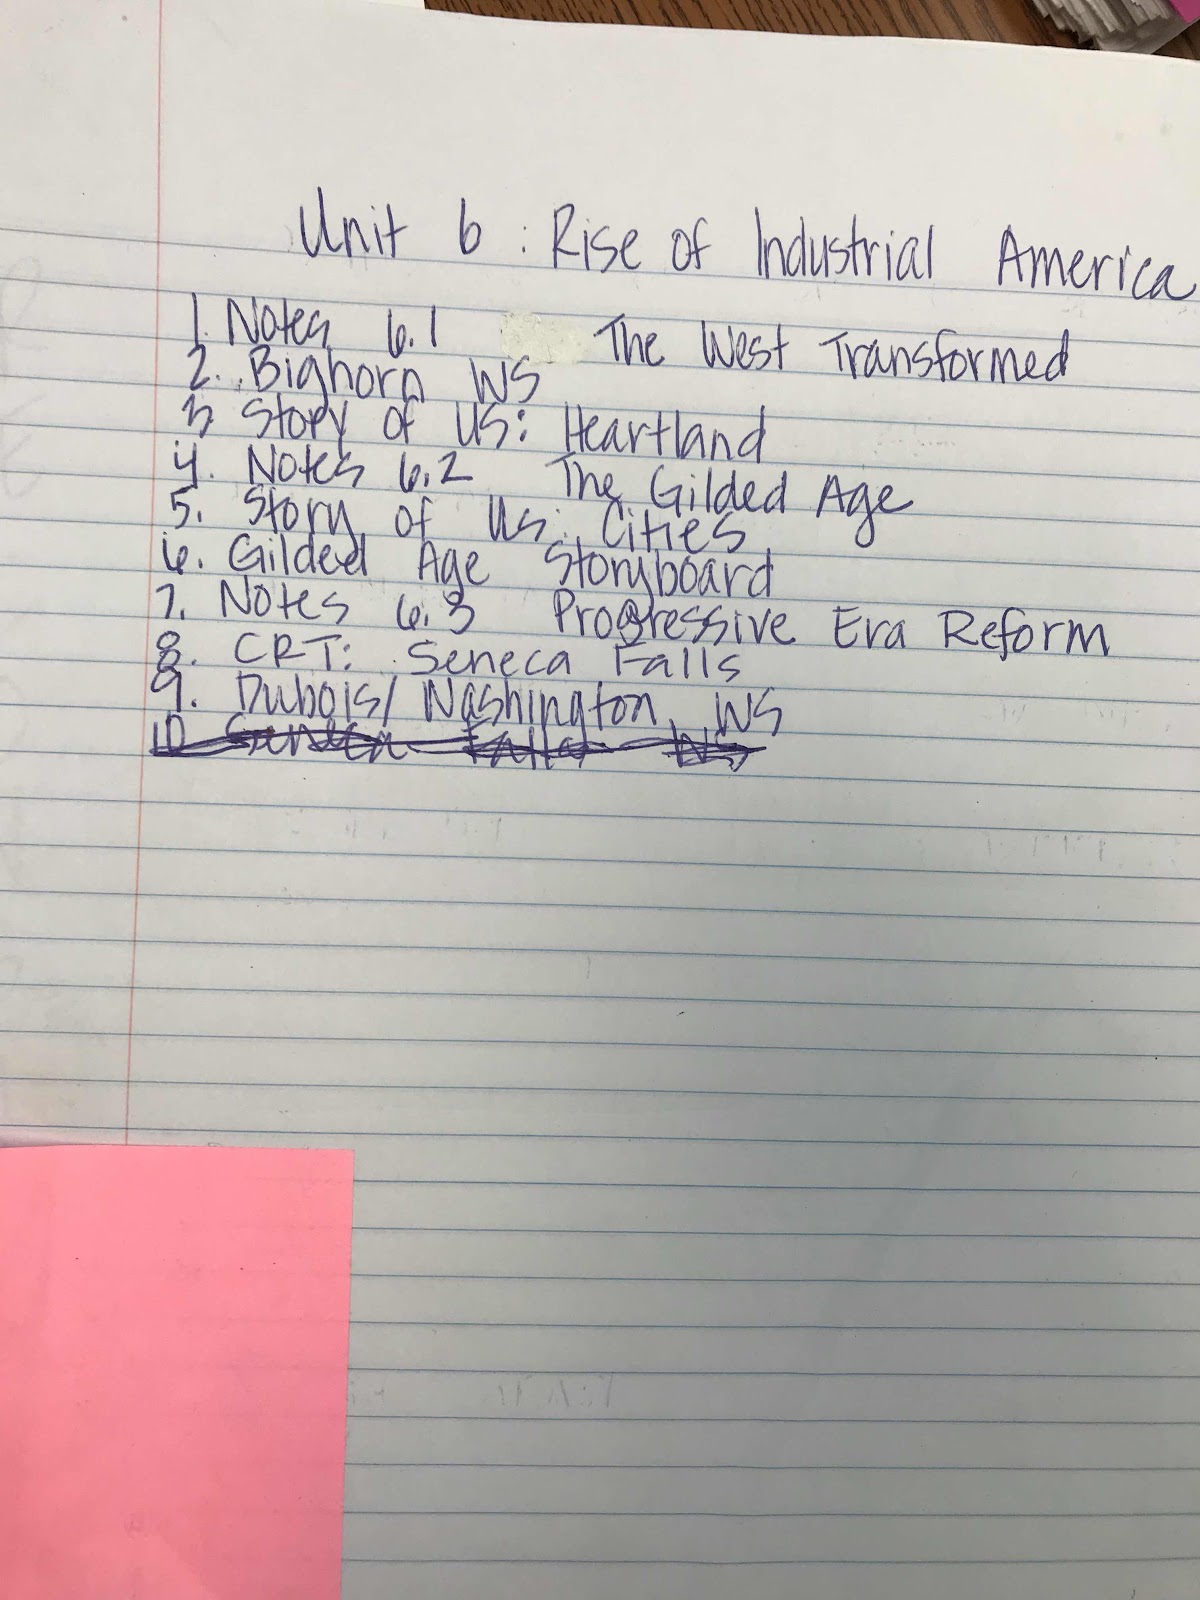 Unit 6 : Rise of Industrial America
1. Notes 6.1 The West Transformed
2. Bighorn WS
3 Story of US: Heartland
4. Notes 6.2 The Gilded Age
5. Story of Us: Cities
6. Gilded Age Storyboard
7. Notes 6.3 Progressive Era Reform
8. CRT: Seneca Falls
9. Dubois/ Washington WS
10 Seneca Falls WS